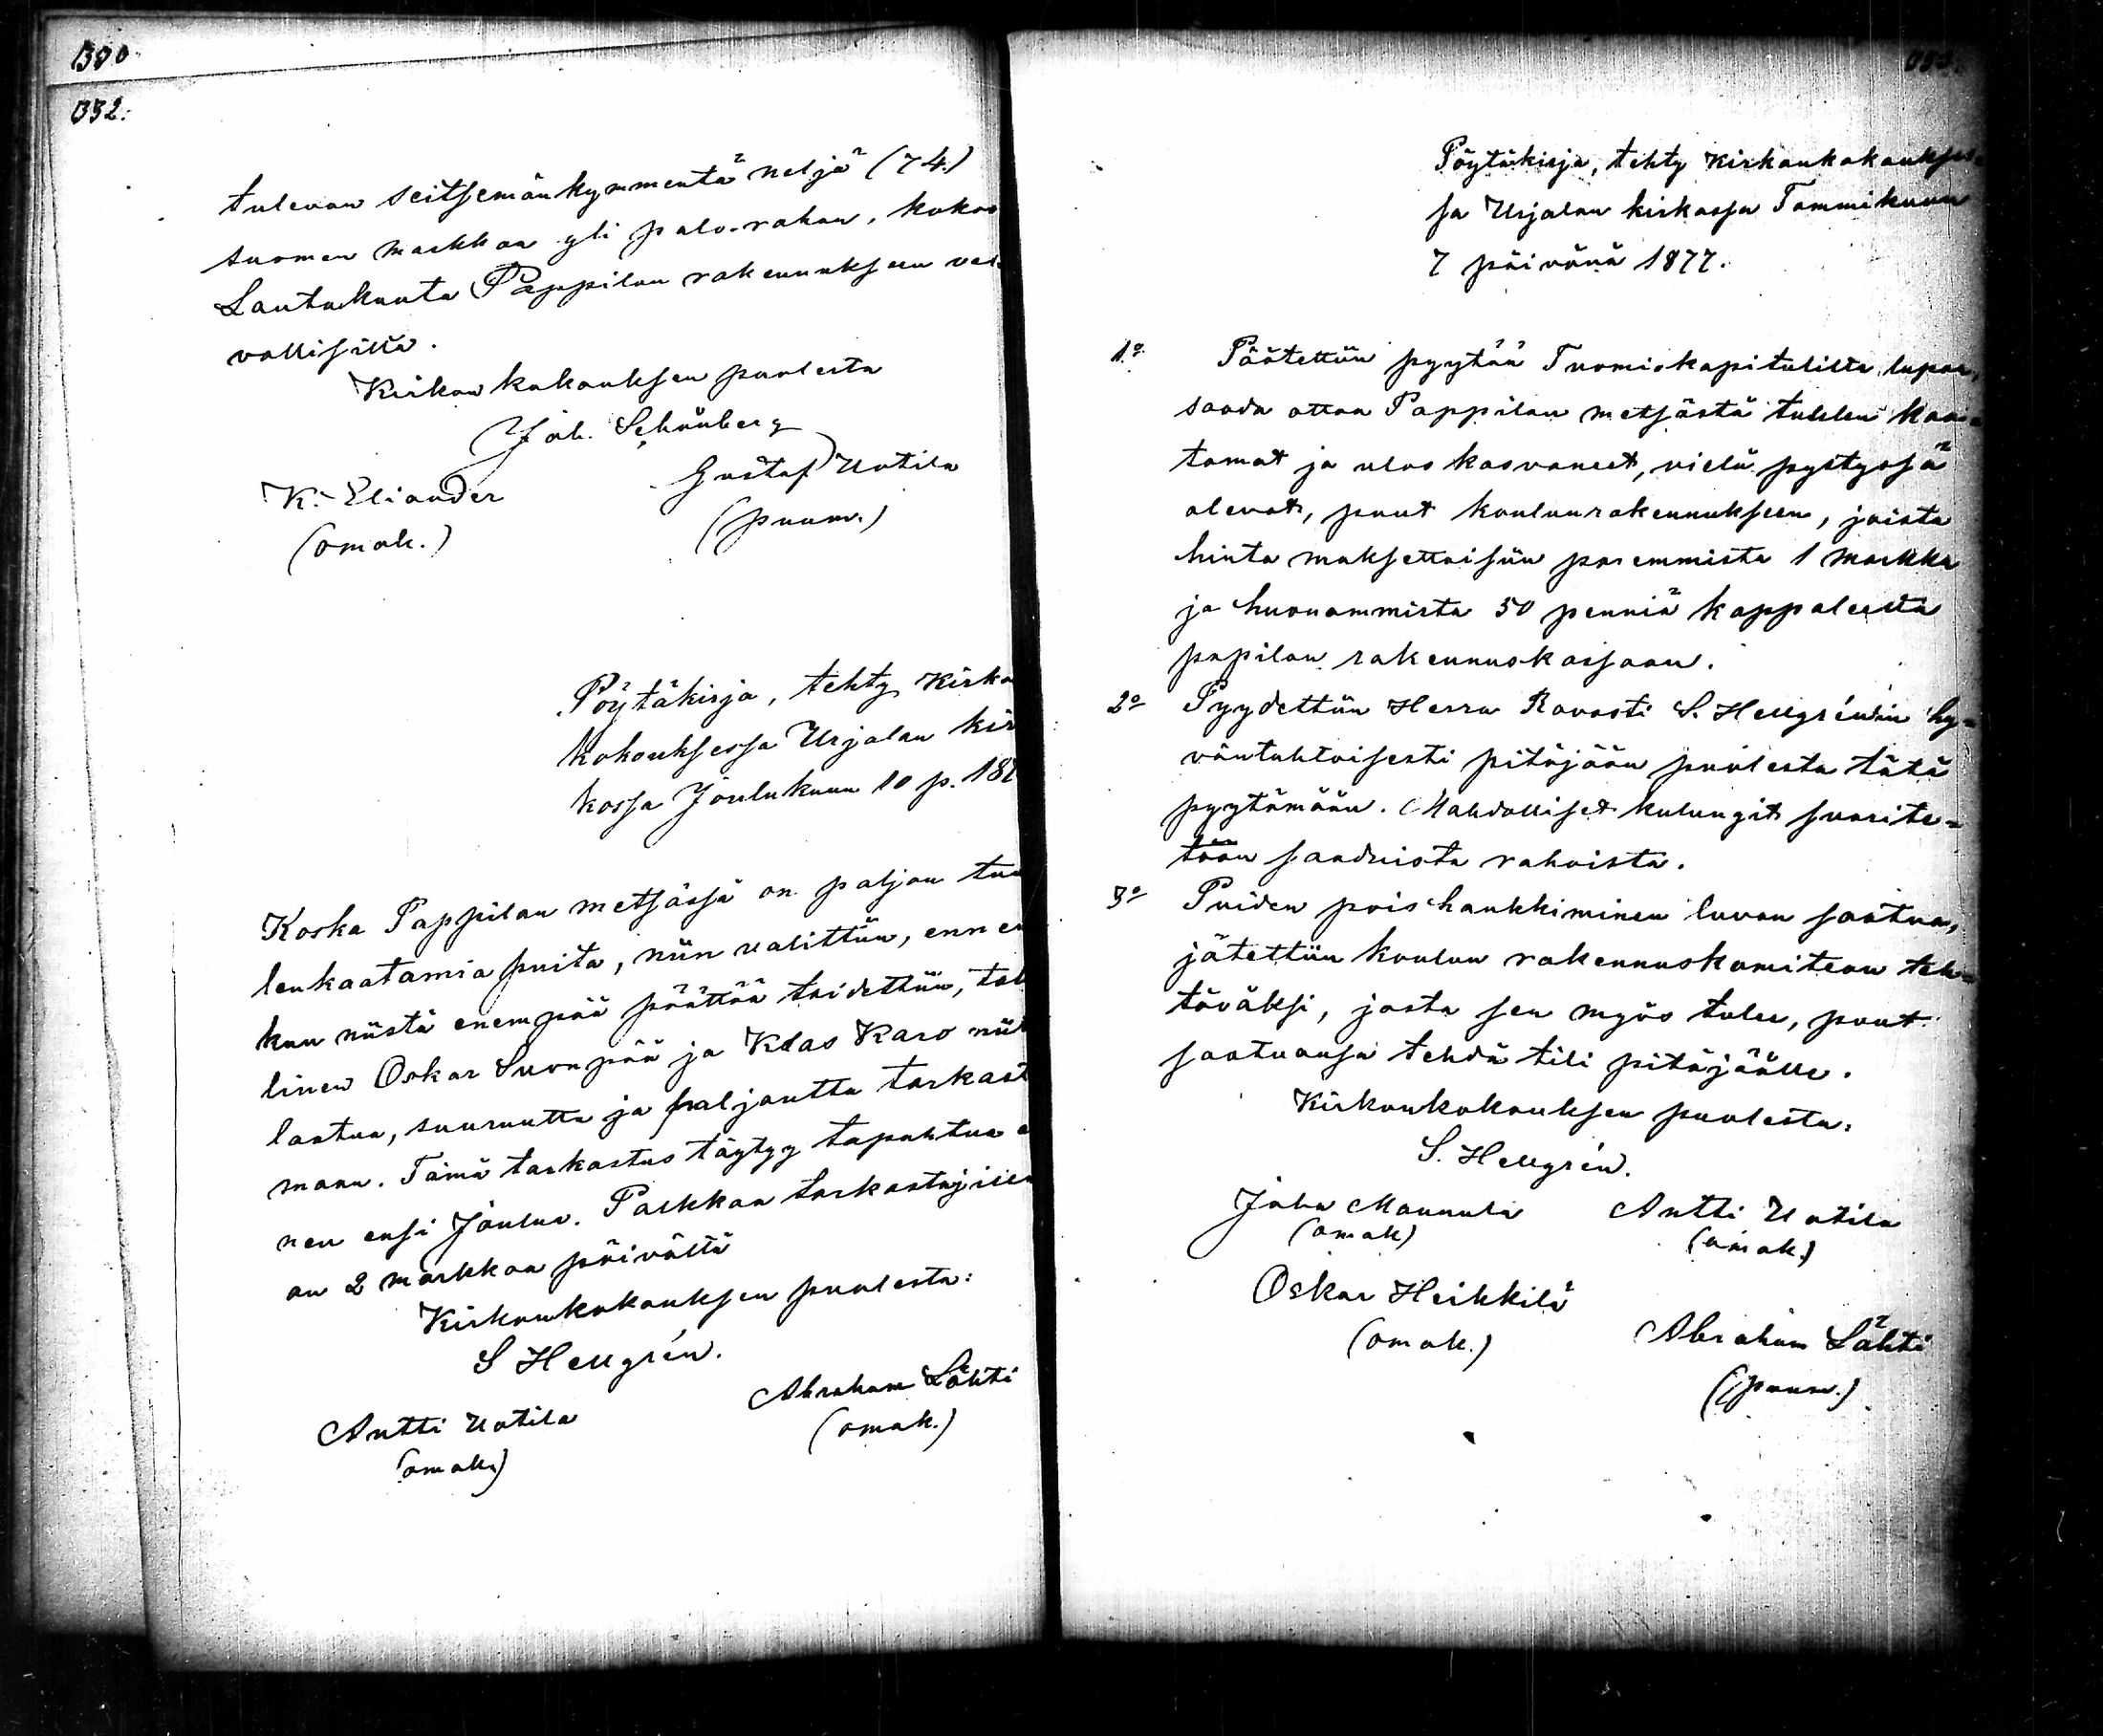 1390
1392.
tulevan seitsemänkymmentä neljä (74.)
suomen markkaa yli palo-rahan, kokoo
Lautakunta Pappilan rakennukseen vel-
vollisilta.
Kirkonkokouksen puolesta
Joh. Schönberg
K. Eliander
Gustaf Uotila
(omak.)
(puum.)
Pöytäkirja, tehty Kirko
kokouksessa Urjalan kir
kossa Joulukuun 10 p. 187
Koska Pappilan metsässä on paljon tuu
lenkaatamia puita, niin valittiin, ennen
kun niistä enempää päättää taidettiin, tal
linen Oskar Suonpää ja Klas Karo niit
laatua, suuruutta ja paljoutta tarkast
maan. Tämä tarkastus täytyy tapahtua e
nen ensi Joulua. Palkkaa tarkastajille
on 2 markkaa päivältä
Kirkonkokouksen puolesta:
S Hellgrén.
Antti Uotila
Abraham Lähti
(omak.)
(omak.)
Pöytäkirja, tehty Kirkonkokoukses
sa Urjalan kirkossa Tammikuun
7 päivänä 1877.
1:o Päätettiin pyytää Tuomiokapitulilta lupaa,
saada ottaa Pappilan metsästä tuulen kaa=
tamat ja ulos kasvaneet, vielä pystyssä
olevat, puut koulurakennukseen, joista
hinta maksettaisiin paremmista 1 markka
ja huonommista 50 penniä kappaleelta
papilan rakennuskassaan.
2o Pyydettiin Herra Rovasti S. Hellgrén'in hy=
väntahtoisesti pitäjään puolesta tätä
pyytämään. Mahdolliset kulungit suorite=
tään saaduista rahoista.
3o Puiden poishankkiminen luvan saatua,
jätettiin koulun rakennuskomitean teh=
täväksi, josta sen myös tulee, puut
saatuansa tehdä tili pitäjäälle.
Kirkonkokouksen puolesta:
S. Hellgrén.
Juha Mannula
Antti Uotila
(omak)
(omak.)
Oskar Heikkilä
(omak.)
Abraham Lähti
(puum.)